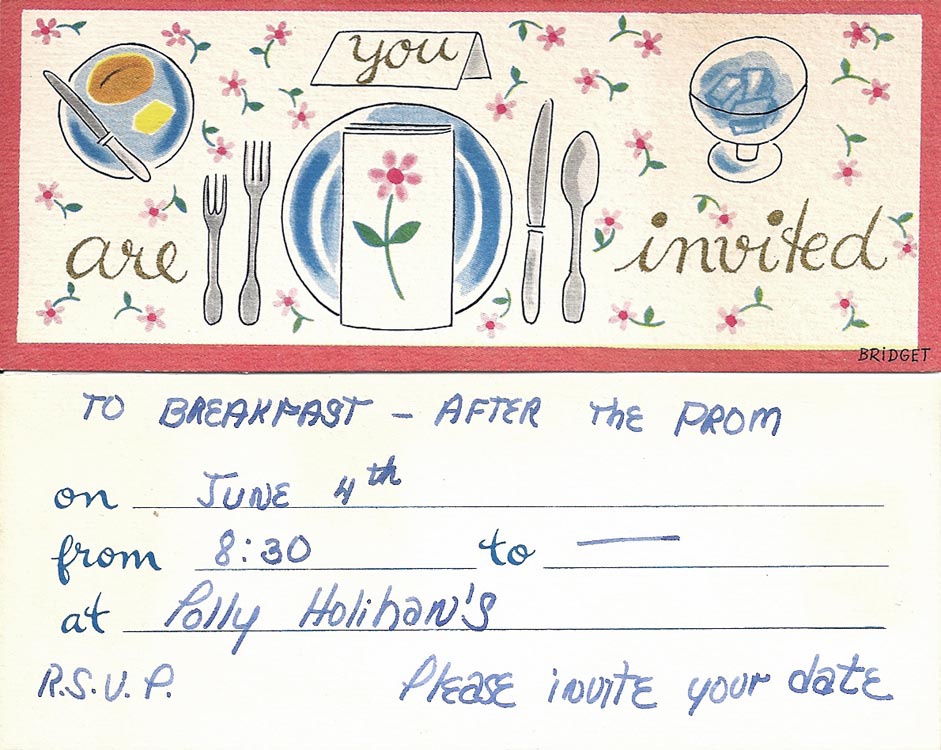 you
are invited
BRIDGET
TO BREAKFAST – AFTER The PROM
on JUNE 4th
from 8:30 to —
at Polly Holihan's
R.S.V.P. PlEASE inviTE your datE